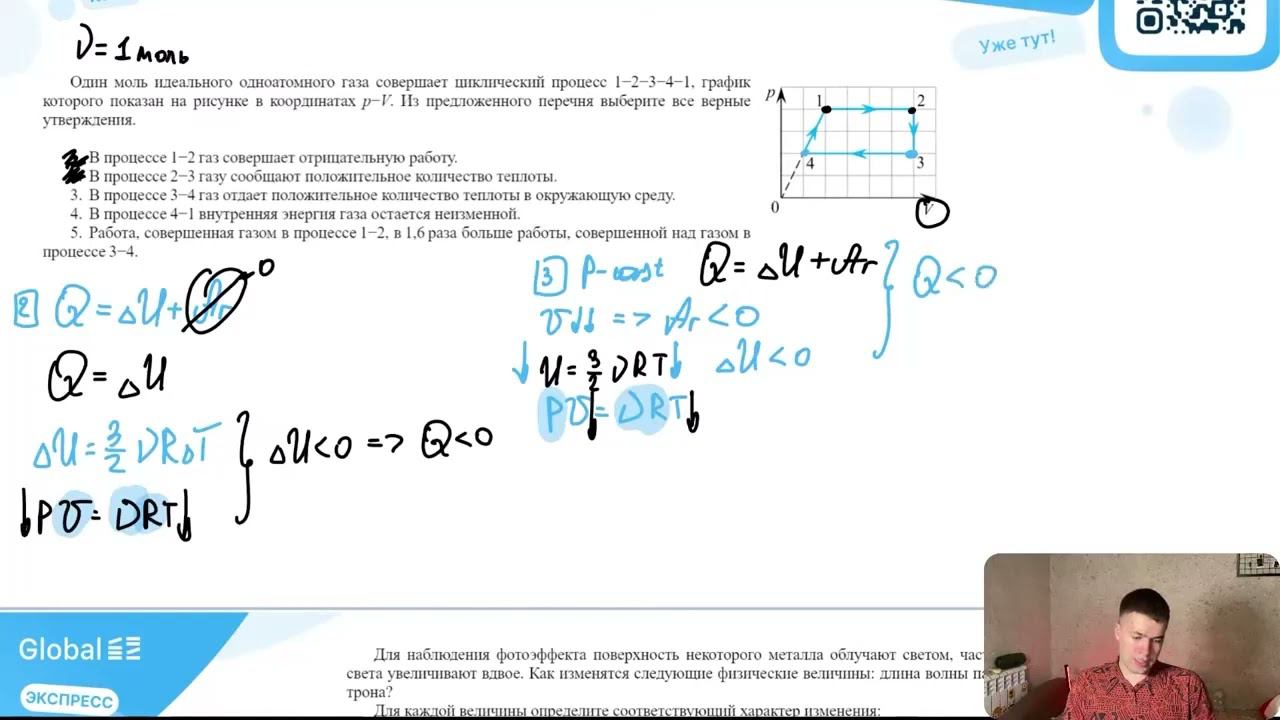 Уже тут!
ν = 1 моль
Один моль идеального одноатомного газа совершает циклический процесс 1−2−3−4−1, график
которого показан на рисунке в координатах p−V. Из предложенного перечня выберите все верные
утверждения.
В процессе 1−2 газ совершает отрицательную работу.
В процессе 2−3 газу сообщают положительное количество теплоты.
3. В процессе 3−4 газ отдает положительное количество теплоты в окружающую среду.
4. В процессе 4−1 внутренняя энергия газа остается неизменной.
5. Работа, совершенная газом в процессе 1−2, в 1,6 раза больше работы, совершенной над газом в
процессе 3−4.
p
1
2
4
3
0
V
2 Q = ΔU + Aг 0
Q = ΔU
ΔU = 3/2 νRΔT
↓PV = νRT↓
ΔU<0 => Q<0
3 P-const Q = ΔU + Aг
V↓↓ => Aг < 0
↓ U = 3/2 νRT↓ ΔU < 0
PV↓ = νRT↓
Q < 0
Global EE
ЭКСПРЕСС
Для наблюдения фотоэффекта поверхность некоторого металла облучают светом, час
света увеличивают вдвое. Как изменятся следующие физические величины: длина волны па
трона?
Для каждой величины определите соответствующий характер изменения: